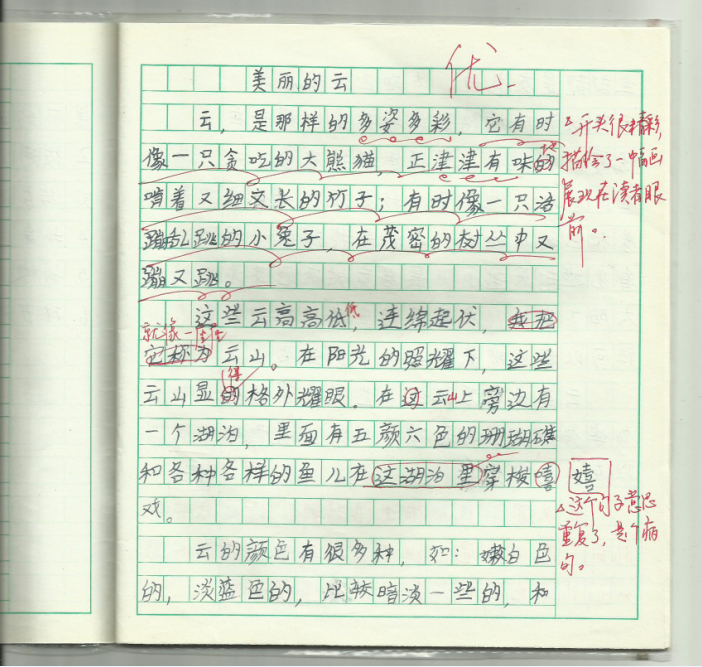 美丽的云
优
云，是那样的多姿多彩，它有时
像一只贪吃的大熊猫，正津津有味的
地
啃着又细又长的竹子；有时像一只活
蹦乱跳的小兔子，在茂密的树丛中又
蹦又跳。
开头很精彩，
描绘了一幅画
展现在读者眼
前。
这些云高高低低，连绵起伏，我把
就像一座座
它称为云山。在阳光的照耀下，这些
得
云山显的格外耀眼。在这云山旁边有
一个湖泊，里面有五颜六色的珊瑚礁
和各种各样的鱼儿在这湖泊里穿梭嘻
嬉
戏。
这个句子意思
重复了，是个病
句。
云的颜色有很多种，如：嫩白色
的，淡蓝色的，比较暗淡一些的，和